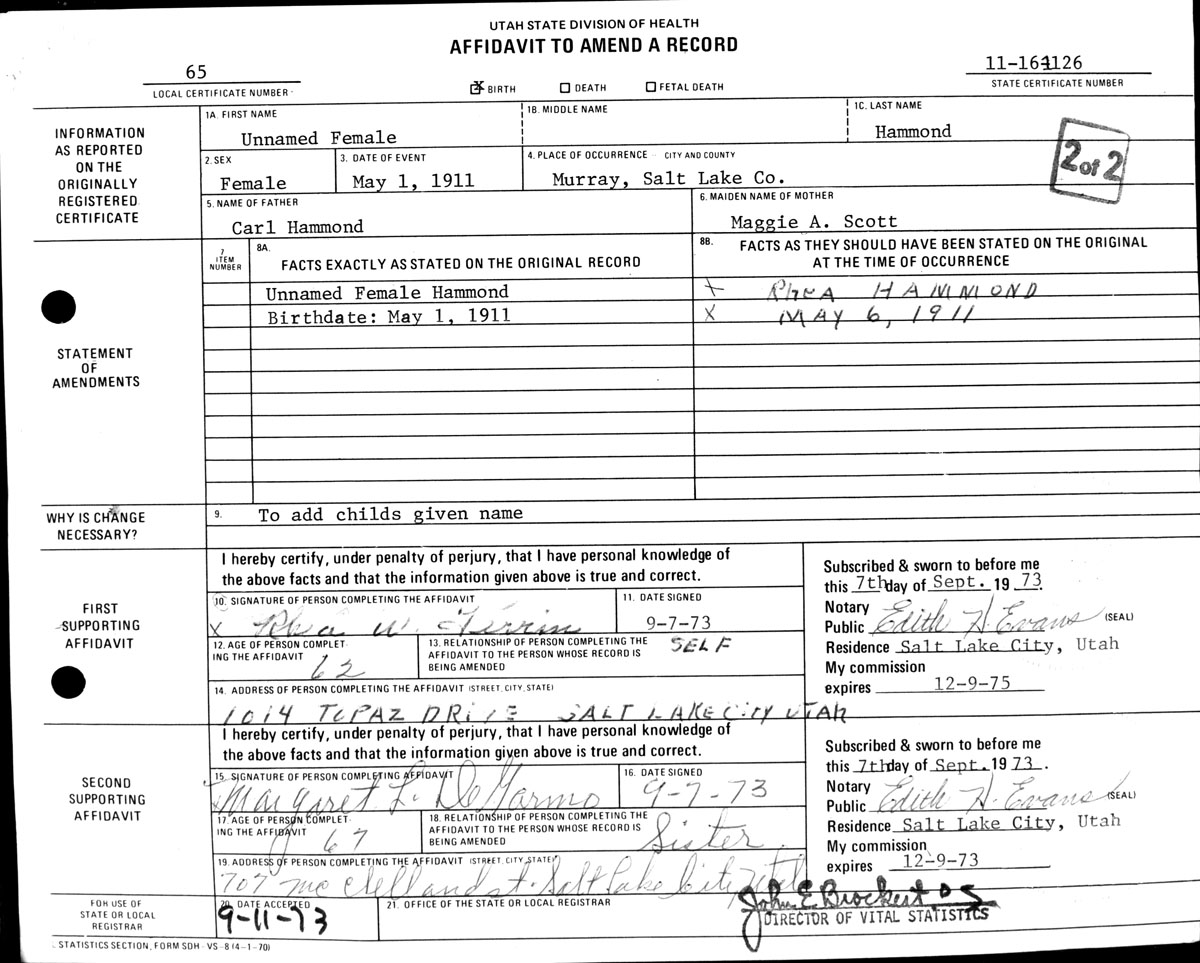 UTAH STATE DIVISION OF HEALTH
AFFIDAVIT TO AMEND A RECORD
65
LOCAL CERTIFICATE NUMBER
X BIRTH DEATH FETAL DEATH
11-164126
STATE CERTIFICATE NUMBER
INFORMATION AS REPORTED ON THE ORIGINALLY REGISTERED CERTIFICATE
1A. FIRST NAME
Unnamed Female
1B. MIDDLE NAME
1C. LAST NAME
Hammond
2 of 2
2. SEX
Female
3. DATE OF EVENT
May 1, 1911
4. PLACE OF OCCURRENCE - CITY AND COUNTY
Murray, Salt Lake Co.
5. NAME OF FATHER
Carl Hammond
6. MAIDEN NAME OF MOTHER
Maggie A. Scott
STATEMENT OF AMENDMENTS
7 ITEM NUMBER
8A. FACTS EXACTLY AS STATED ON THE ORIGINAL RECORD
8B. FACTS AS THEY SHOULD HAVE BEEN STATED ON THE ORIGINAL
AT THE TIME OF OCCURRENCE
Unnamed Female Hammond
X RhEA HAMMOND
Birthdate: May 1, 1911
X MAY 6, 1911
WHY IS CHANGE NECESSARY?
9. To add childs given name
FIRST SUPPORTING AFFIDAVIT
I hereby certify, under penalty of perjury, that I have personal knowledge of
the above facts and that the information given above is true and correct.
10. SIGNATURE OF PERSON COMPLETING THE AFFIDAVIT
X Rhea W.
11. DATE SIGNED
9-7-73
12. AGE OF PERSON COMPLET
ING THE AFFIDAVIT 62
13. RELATIONSHIP OF PERSON COMPLETING THE
AFFIDAVIT TO THE PERSON WHOSE RECORD IS
BEING AMENDED
SELF
14. ADDRESS OF PERSON COMPLETING THE AFFIDAVIT (STREET, CITY, STATE)
1014 TOPAZ DRIVE SALT LAKE CITY UTAH
Subscribed & sworn to before me
this 7th day of Sept. 19 73
Notary
Public Edith H. Evans (SEAL)
Residence Salt Lake City, Utah
My commission
expires 12-9-75
SECOND SUPPORTING AFFIDAVIT
I hereby certify, under penalty of perjury, that I have personal knowledge of
the above facts and that the information given above is true and correct.
15. SIGNATURE OF PERSON COMPLETING AFFIDAVIT
Margaret L. DeGarmo
16. DATE SIGNED
9-7-73
17. AGE OF PERSON COMPLET
ING THE AFFIDAVIT 67
18. RELATIONSHIP OF PERSON COMPLETING THE
AFFIDAVIT TO THE PERSON WHOSE RECORD IS
BEING AMENDED
Sister
19. ADDRESS OF PERSON COMPLETING THE AFFIDAVIT (STREET, CITY, STATE)
707 Mc Clelland st. Salt Lake City Utah
Subscribed & sworn to before me
this 7th day of Sept. 19 73.
Notary
Public Edith H. Evans (SEAL)
Residence Salt Lake City, Utah
My commission
expires 12-9-73
FOR USE OF STATE OR LOCAL REGISTRAR
20. DATE ACCEPTED
9-11-73
21. OFFICE OF THE STATE OR LOCAL REGISTRAR
John E. Brockert
DIRECTOR OF VITAL STATISTICS
STATISTICS SECTION, FORM SDH-VS-8 (4-1-70)